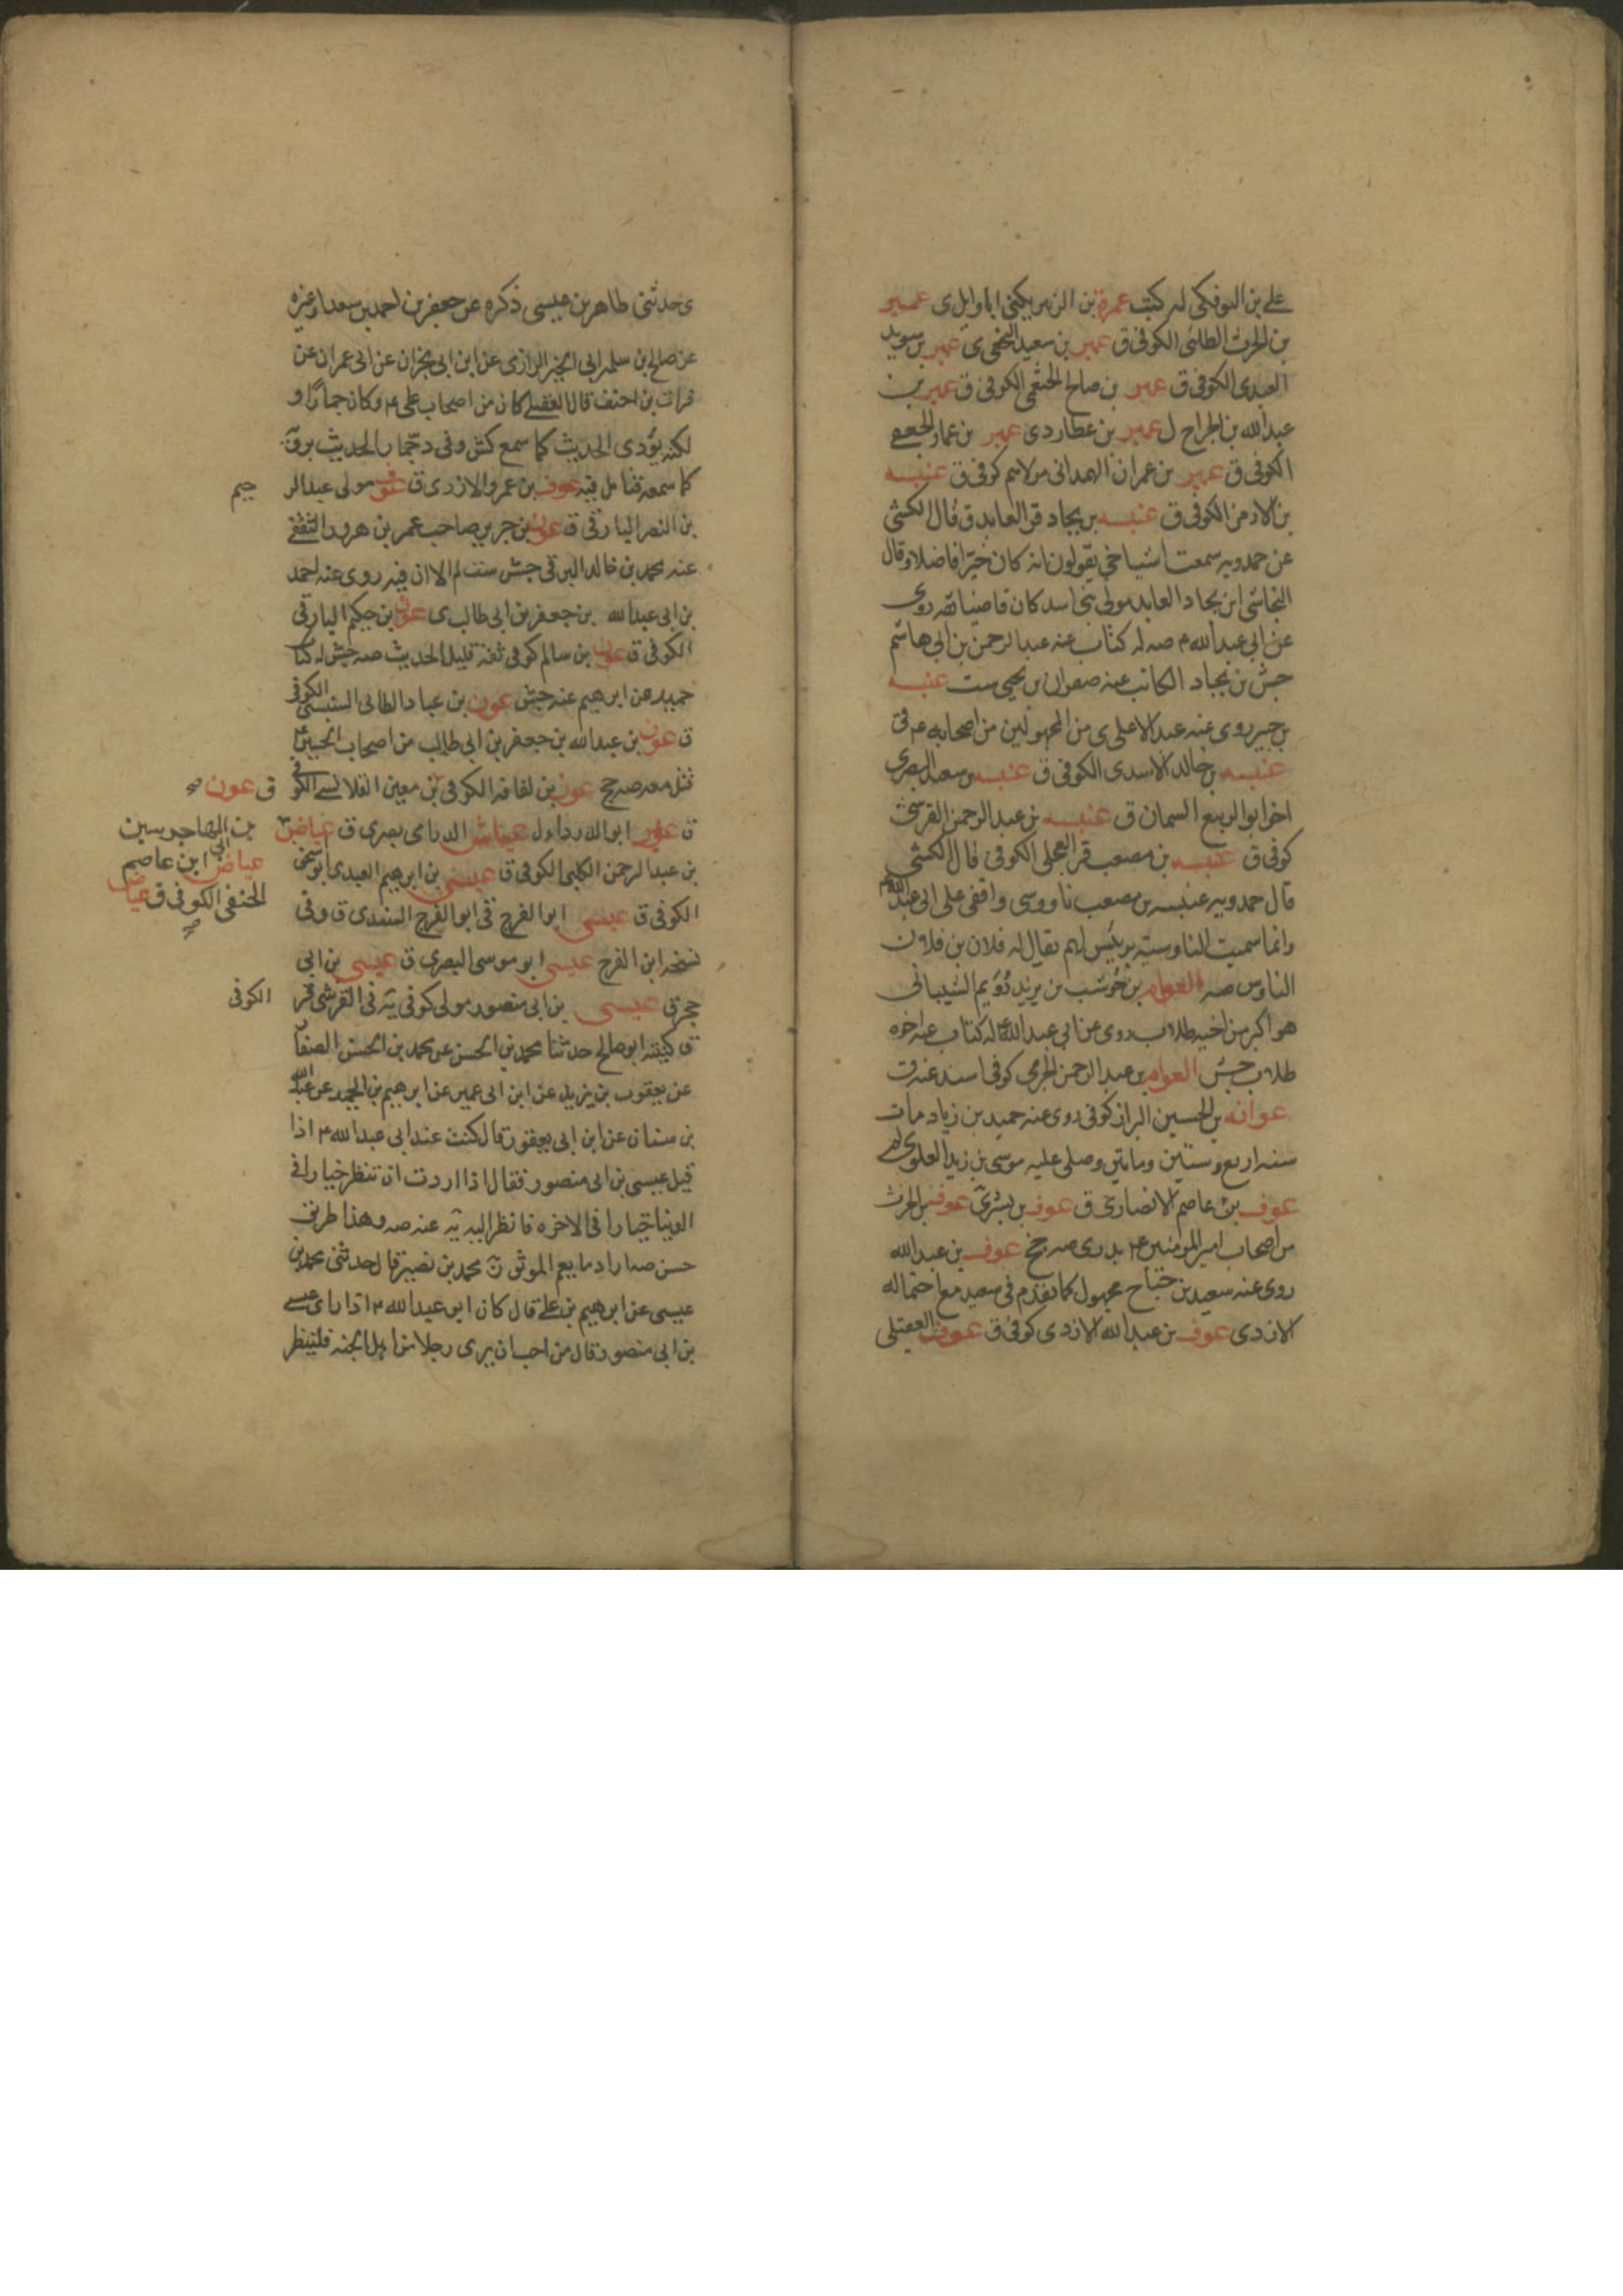 علي بن البوفكى له كتب عمرة بن الزبير يكنى ابا وايل ى عمير
بن الحرث الطلى الكوفى ق عمير بن سعيد النخعى ى عمير بن سويد
العبدى الكوفى ق عمير بن صالح الخثعمى الكوفى ق عمير بن
عبدالله بن الجراح ل عمير بن عطارد ى عمير بن عمار الجعفى
الكوفى ق عمير بن عمران الهمدانى مولاهم كوفى ق عنبسه
بن الازهر الكوفى ق عنبسه بن بجاد قر العابد ق قال الكشى
عن حمدويه سمعت اشياخى يقولون انه كان خيرا فاضلا وقال
النجاشى ابن بجاد العابد مولى بنى اسد كان قاضيا ثقه روى
عن ابى عبدالله ع صه له كتاب عنه عبدالرحمن بن ابى هاشم
جش بن بجاد الكاتب عنه صفوان بن يحيى ست عنبسه
بن جبير روى عنه عبد الاعلى ى من المجهولين من اصحابه ع ق
عنبسه بن خالد الاسدى الكوفى ق عنبسه بن سعيد البصرى
اخو ابو الربيع السمان ق عنبسه بن عبدالرحمن القرشى
كوفى ق عنبسه بن مصعب قر العجلى الكوفى قال الكشى
قال حمدويه عنبسه بن مصعب ناووسى واقفى على ابى عبدالله ع
وانما سميت الناوسية برئيس لهم يقال له فلان بن فلان
الناوس صه العوام بن حوشب بن يزيد رويم الشيبانى
هو اكبر من اخيه طلاب روى عن ابى عبدالله ع له كتاب عنه اخوه
طلاب جش العوام بن عبدالرحمن الجرمى كوفى اسند عنه ق
عوانه بن الحسين البزاز كوفى روى عنه حميد بن زياد مات
سنه اربع وستين ومايتين وصلى عليه موسى بن زيد العلوى لم
عوف بن عاصم الانصارى ق عوف بن بشر ى عوف بن الحرث
من اصحاب امير المومنين ع بدرى صه جخ عوف بن عبدالله
روى عنه سعيد بن جناح مجهول كما تقدم فى سعيد مع احتماله
الازدى عوف بن عبدالله الازدى كوفى ق عوف العقيلى
ى حدثنى طاهر بن عيسى ذكره عن جعفر بن احمد بن سعد او غيره
عن صالح بن سلمه ابى الخير الرازى عن ابن ابى نجران عن ابى عمران عن
فرات بن احنف قال العقيلى كان من اصحاب على ع وكان جمارا و
لكنه يؤدى الحديث كما سمع كش وفى د خمار الحديث يرو
كما سمعه فتامل فيه عوف بن عمرو الازدى ق عوف مولى عبدالر
جيم
بن النضر البارقى ق عون بن جرير صاحب عمر بن هرون الثقفى
عنه محمد بن خالد البرقى جش ست لم الا ان فيه روى عنه احمد
بن ابى عبدالله بن جعفر بن ابى طالب ى عون بن حكيم البارقى
الكوفى ق عون بن سالم كوفى ثقة قليل الحديث صه جش له كتاب
حميد عن ابرهيم عنه جش عون بن عباد الطائى السنبسى الكوفى
ق عون بن عبدالله بن جعفر بن ابى طالب من اصحاب الحسين ع
قتل معه صه جخ عون بن لفافه الكوفى بن معين القلانسى الكوفى
ق عون صح
ق عوير ابو الدرداء ل عياش الدرناى بصرى ق عياض
بن المهاجر سين
بن عبدالرحمن الكلبى الكوفى ق عيسى بن ابرهيم العبدى ابو سخى
عياض ابن ابى عاصم
الكوفى ق عيسى ابو الفرج فى ابو الفرج السندى ق وفى
الحنفى الكوفى ق عياض
صح
نسخه ابن الفرج عيسى ابو موسى البصرى ق عيسى بن ابى
حجر ق عيسى بن ابى منصور مولى كوفى يه فى القرشى قر
الكوفى
ق كنيته ابو صالح حدثنا محمد بن الحسن عن محمد بن الحسن الصفار
عن يعقوب بن يزيد عن ابن ابى عمير عن ابرهيم بن عبد الحميد عن عبدالله
بن سنان عن ابن ابى يعفور قال كنت عند ابى عبدالله ع اذا
قبل عيسى بن ابى منصور فقال اذا اردت ان تنظر خيارا فى
الدنيا خيارا فى الاخره فانظر اليه يه عنه صه وهذا طريق
حسن صه اراد ما يعم الموثق ن محمد بن نصير قال حدثنى محمد بن
عيسى عن ابرهيم بن على قال كان ابو عبدالله ع اذا راى عيسى
بن ابى منصور قال من احب ان يرى رجلا من اهل الجنه فلينظر